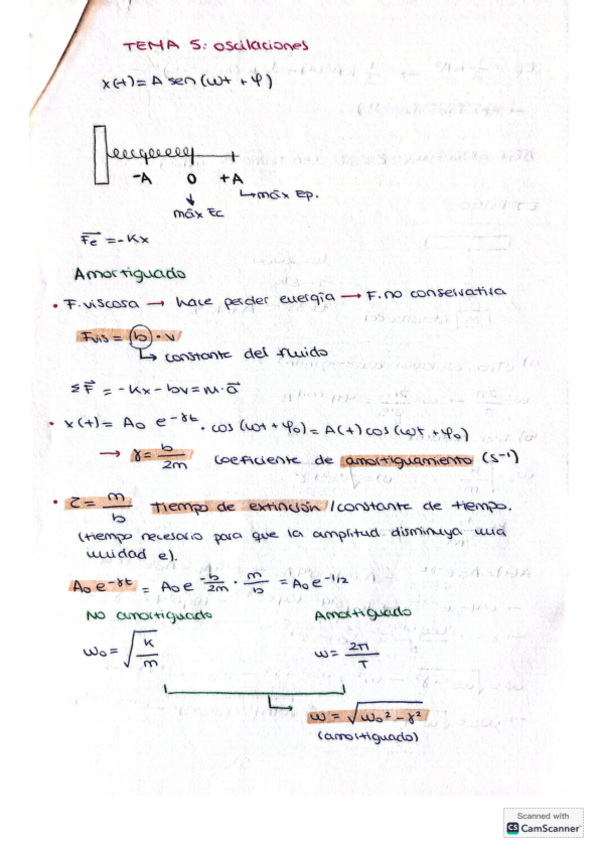 TEMA 5: oscilaciones
x(t) = A sen (ωt + φ)
-A O +A
↳ máx Ep.
máx Ec
Fe = -Kx
Amortiguado
• F. viscosa → hace perder energía → F. no conservativa
Fvis = b · v
↳ constante del fluido
ΣF = -Kx - bv = m · a
• x(t) = A₀ e^-γt · cos (ωt + φ₀) = A(t) cos (ωt + φ₀)
→ γ = b/2m coeficiente de amortiguamiento (s-1)
• τ = m/b Tiempo de extinción / constante de tiempo.
(tiempo necesario para que la amplitud disminuya una
unidad e).
A₀ e^-γt = A₀ e^-b/2m · m/b = A₀ e^-1/2
No amortiguado Amortiguado
ω₀ = √K/m ω = 2π/T
ω = √ω₀² - γ²
(amortiguado)
Scanned with
CS CamScanner